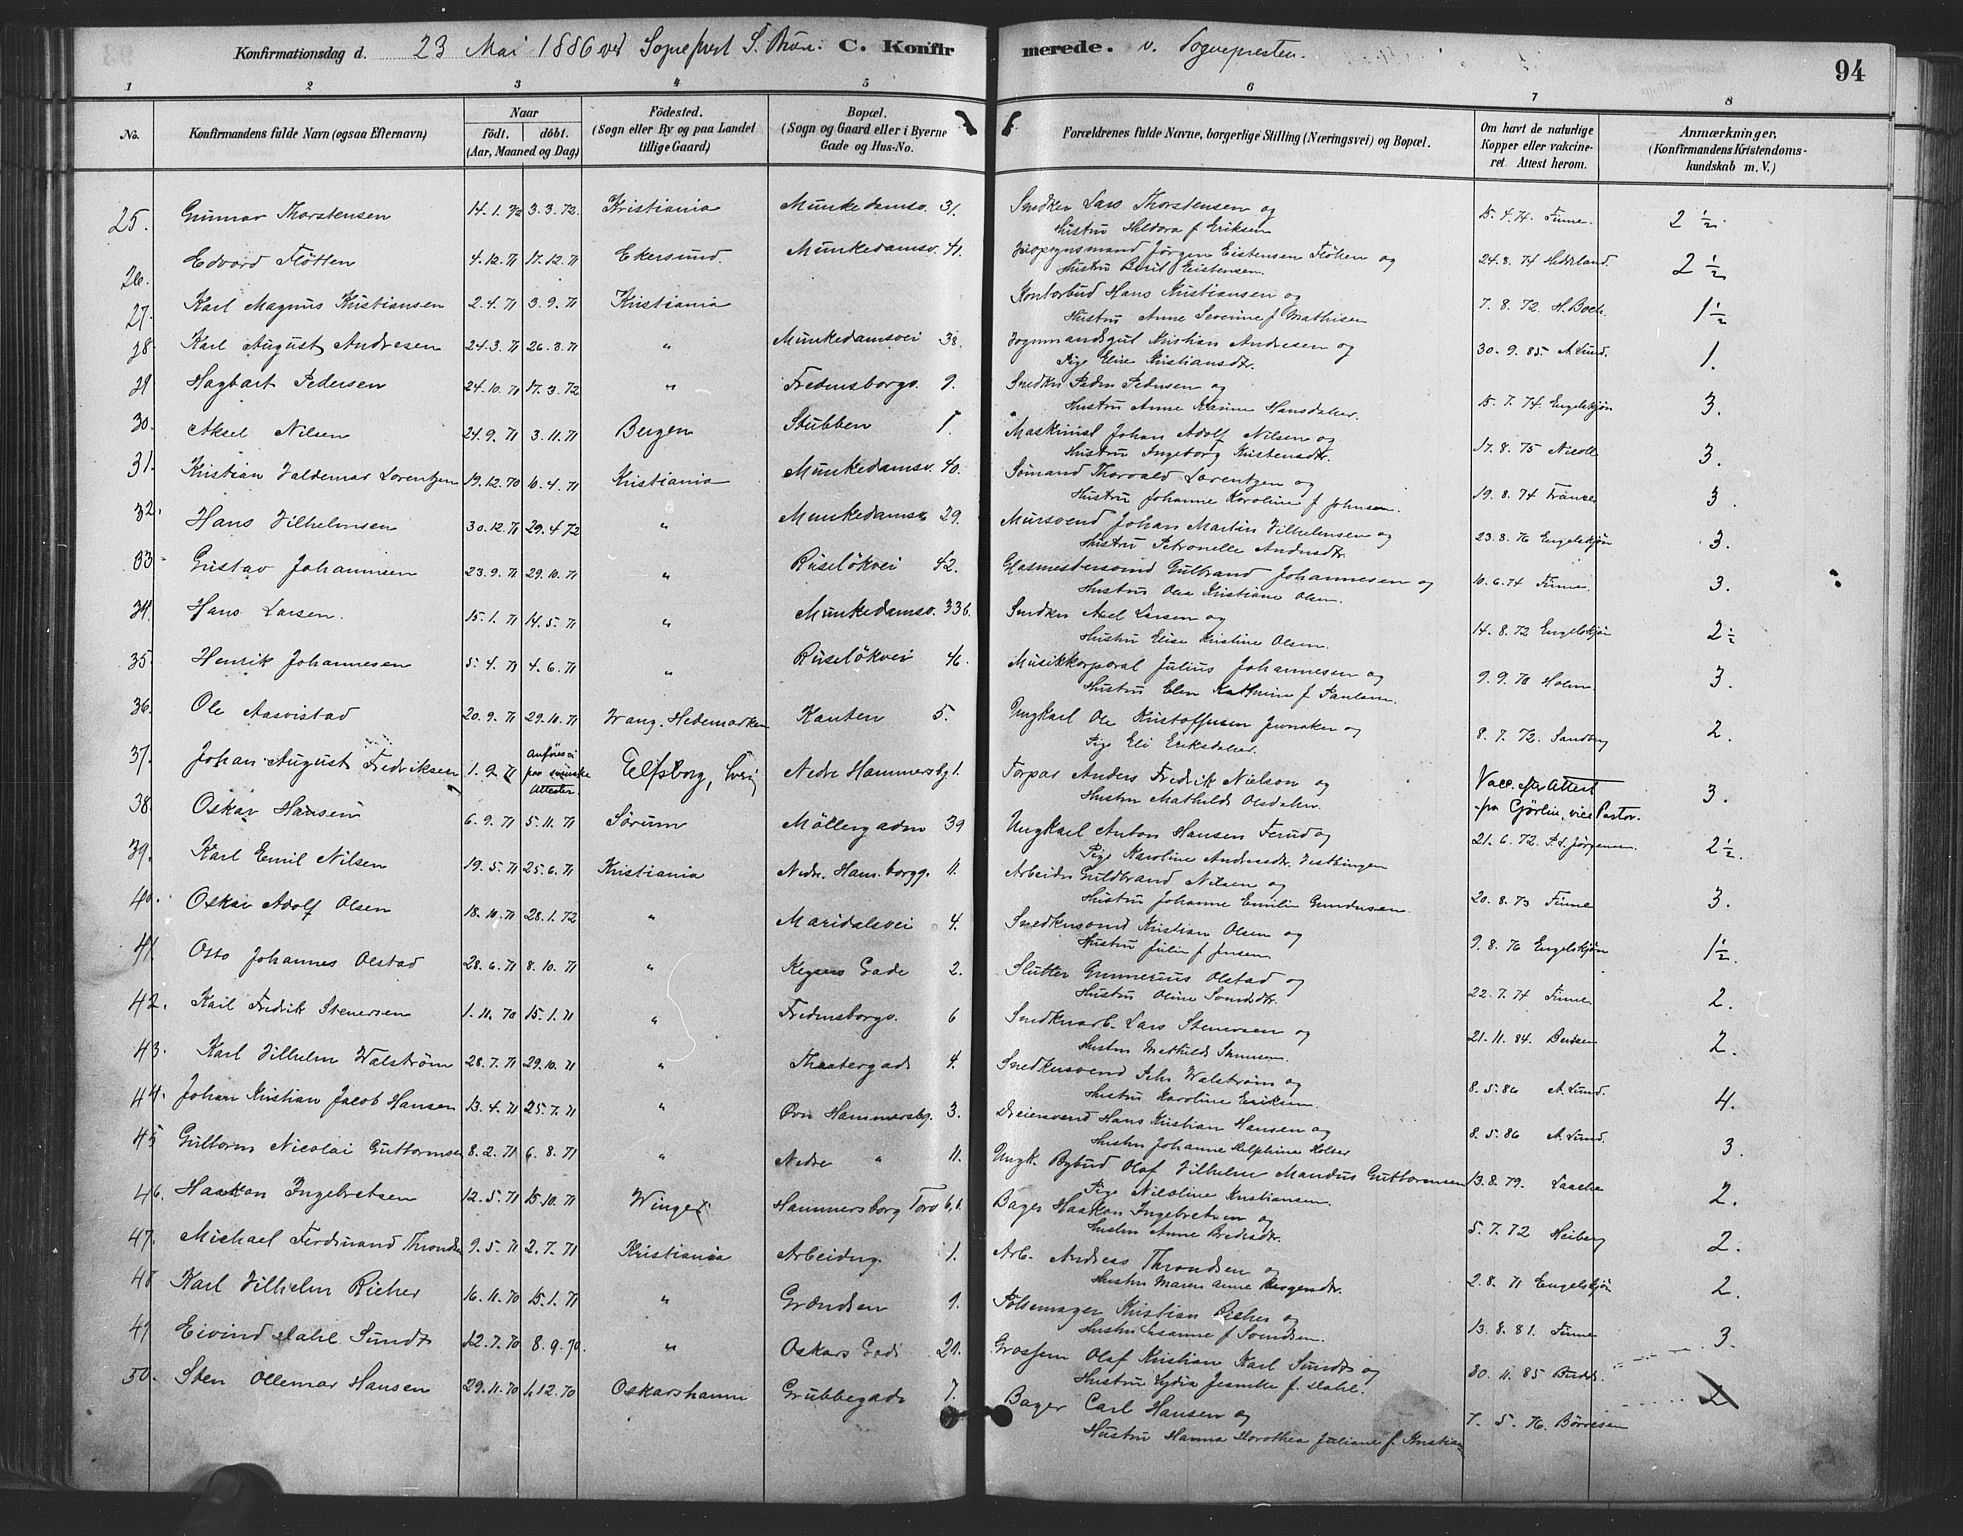 Konfirmationsdag d. 23 Mai 1886 ved Sognepræst C. Konfirmerede. v. Sognepresten.
94
1 2 3 4 5 6 7 8
No. Konfirmandens fulde Navn (ogsaa Efternavn) Naar födt. döbt. (Aar, Maaned og Dag) Födested. (Sogn eller By og paa Landet tillige Gaard) Bopæl. (Sogn og Gaard eller i Byerne Gade og Hus-No. Forældrenes fulde Navne, borgerlige Stilling (Næringsvei) og Bopæl. Om havt de naturlige Kopper eller vakcineret. Attest herom. Anmærkninger, (Konfirmandens Kristendomskundskab m. V.)
25. Gunnar Thorstensen 14.1.72 3.3.72. Kristiania Munkedamsv. 31. Snedker Lars Thorstensen og 15.4.74 Finne. 2 ½.
Hustru Heldora f Eriksen
26. Edvard Fløtten 4.12.71 17.12.71 Ekersund. Munkedamsv. 41. Jørgen Eistensen Fløtten og 24.8.74 Hetland. 2 ½
Hustru Berit Eistensen.
27. Karl Magnus Kristiansen 2.4.71 3.9.71 Kristiania Kontorbud Hans Kristiansen og 7.8.72 H. Boch. 1 ½
Hustru Anne Severine f Mathisen
28. Karl August Andresen 24.3.71 26.3.71 " Munkedamsvei 38. Kristian Andresen og 30.9.85 A. Lund. 1.
Pige Elise Kristiansdtr.
29 Hagbart Pedersen 24.10.71 17.3.72 " Fredensborgv. 9. Snedker Peder Pedersen og 15.7.74 Engelskjøn 3.
Hustru Anne Karine Hansdatter.
30. Aksel Nilsen 24.9.71 3.11.71 Bergen Stubben 1. Maskinist Johan Adolf Nilsen og 17.8.75 Nicoll 3.
Hustru Ingeborg Kristensdtr.
31. Kristian Valdemar Lorentzen 19.12.70 10.4.71 Kristiania Munkedamsv. 40. Sømand Thorvald Lorentzen og 19.8.74 3.
Hustru Johanne Karoline f Johnsen.
32. Hans Vilhelmsen 30.12.71 29.4.72 " Munkedamsv 29. Mursvend Johan Martin Vilhelmsen og 23.8.76 Engelskjøn 3.
Hustru Petronelle Andersdtr.
33 Gustav Johannesen 23.9.71 29.10.71 " Ruseløkvei 42. Glasmestersvend Gulbrand Johannesen og 10.6.74 Finne. 3.
Hustru Olea Kristiane Olsen.
34. Hans Larsen. 15.1.71 14.5.71 " Munkedamsv. 33b. Snedker Axel Larsen og 14.8.72 Engelskjøn 2½
Hustru Elise Kristine Olsen.
35. Henrik Johannesen 5.4.71 4.6.71 " Ruseløkvei 46. Musikkorporal Julius Johannesen og 9.9.71 Holm 3.
Hustru Elen Kathrine f Paulsen.
36. Ole Aasvistad 20.9.71 29.10.71 Vang. Hedemarken Kanten 5. Ungkarl Ole Kristoffersen Jevnaker og 8.7.72. Sandberg 2.
Pige Eli Eriksdatter.
37. Johan August Fredriksen 1.9.71 anføres ei paa svenske Attester. Elfsborg, Sverig Nedre Hammersbg 1. Torpar Anders Fredrik Nielson og Vacc. efter Attest fra Görlin, vice Pastor. 3.
Hustru Mathilde Olsdatter.
38. Oskar Hansen 6.9.71 5.11.71 Sørum Møllergaden 39 Ungkarl Anton Hansen Ferud og 21.6.72. P.S. Jørgensen. 2½.
Pige Karoline Andersdtr. Vestbingen
39. Karl Emil Nilsen 19.5.71 25.6.71 Kristiania Nedre. Ham. borgg. 11. Arbeider Guldbrand Nilsen og 20.8.73 Finne 3.
Hustru Johanne Emilie Gundersen.
40. Oskar Adolf Olsen 18.10.71 28.1.72 " Maridalsvei 4. Snedkersvend Kristian Olsen og 9.8.76 Engelskjøn 1½.
Hustru Julie f Jensen
41. Otto Johannes Olstad 28.6.71 8.10.71 " Keysers Gade 2. Slutter Gunnerius Olstad og 22.7.74 Finne 2.
Hustru Oline Svendsdtr.
42. Karl Fredrik Stenersen 1.11.70 15.1.71 " Fredensborgv. 6 Snedkerarb. Lars Stenersen og 21.11.84. 2.
Hustru Mathilde
43. Karl Vilhelm Walstrøm 28.7.71 29.10.71 " Theatergade 4. Snedkersvend Pehr Walstrøm og 8.5.86 A. Lund. 4.
Hustru Karoline Eriksen.
44. Johan Kristian Jacob Hansen 13.4.71 25.7.71 " Øvre Hammersbg. 3. Dreiersvend Hans Kristian Hansen og 8.5.86 A. Lund. 3.
Hustru Johanne Delphine Holter
45 Guttorm Nicolai Guttormsen 8.2.71 6.8.71 " Nedre " 11. Ungk. Bybud Olaf Vilhelm Mandus Guttormsen 13.8.79. Laache 2.
Pige Nicoline Kristiansen.
46. Haakon Ingebretsen 12.5.71 15.10.71 Winger Hammersborg Torv 6b. Bager Haakon Ingebretsen og 5.7.72 Heiberg 2.
Hustru Anne Bredesdtr.
47. Michael Ferdinand Throndsen 9.5.71 2.7.71 Kristiania Arbeiderg. 1. Arb. Andreas Throndsen og 2.8.71 Engelskjøn 2.
Hustru Maren Anne Jørgensdtr.
48 Karl Vilhelm Richer 16.11.70 15.1.71 " Grændsen 9. Pølsemager Kristian Richer og 13.8.81. Finne 3.
Hustru Susanne f Svendsen.
49 Eivind Dahl Sundt 12.7.70 8.9.70. " Oskars Gade 20. Grosserer Olaf Kristian Karl Sundt og 30.11.85
Hustru Lydia Jeanette f. Dahl.
50. Sten Ollemar Hansen 29.11.70 4.12.70 Oskarshamn Grubbegade 7. Bager Carl Hansen og 7.5.76. Børresen 2
Hustru Hanna Dorothea Juliane f Kristian